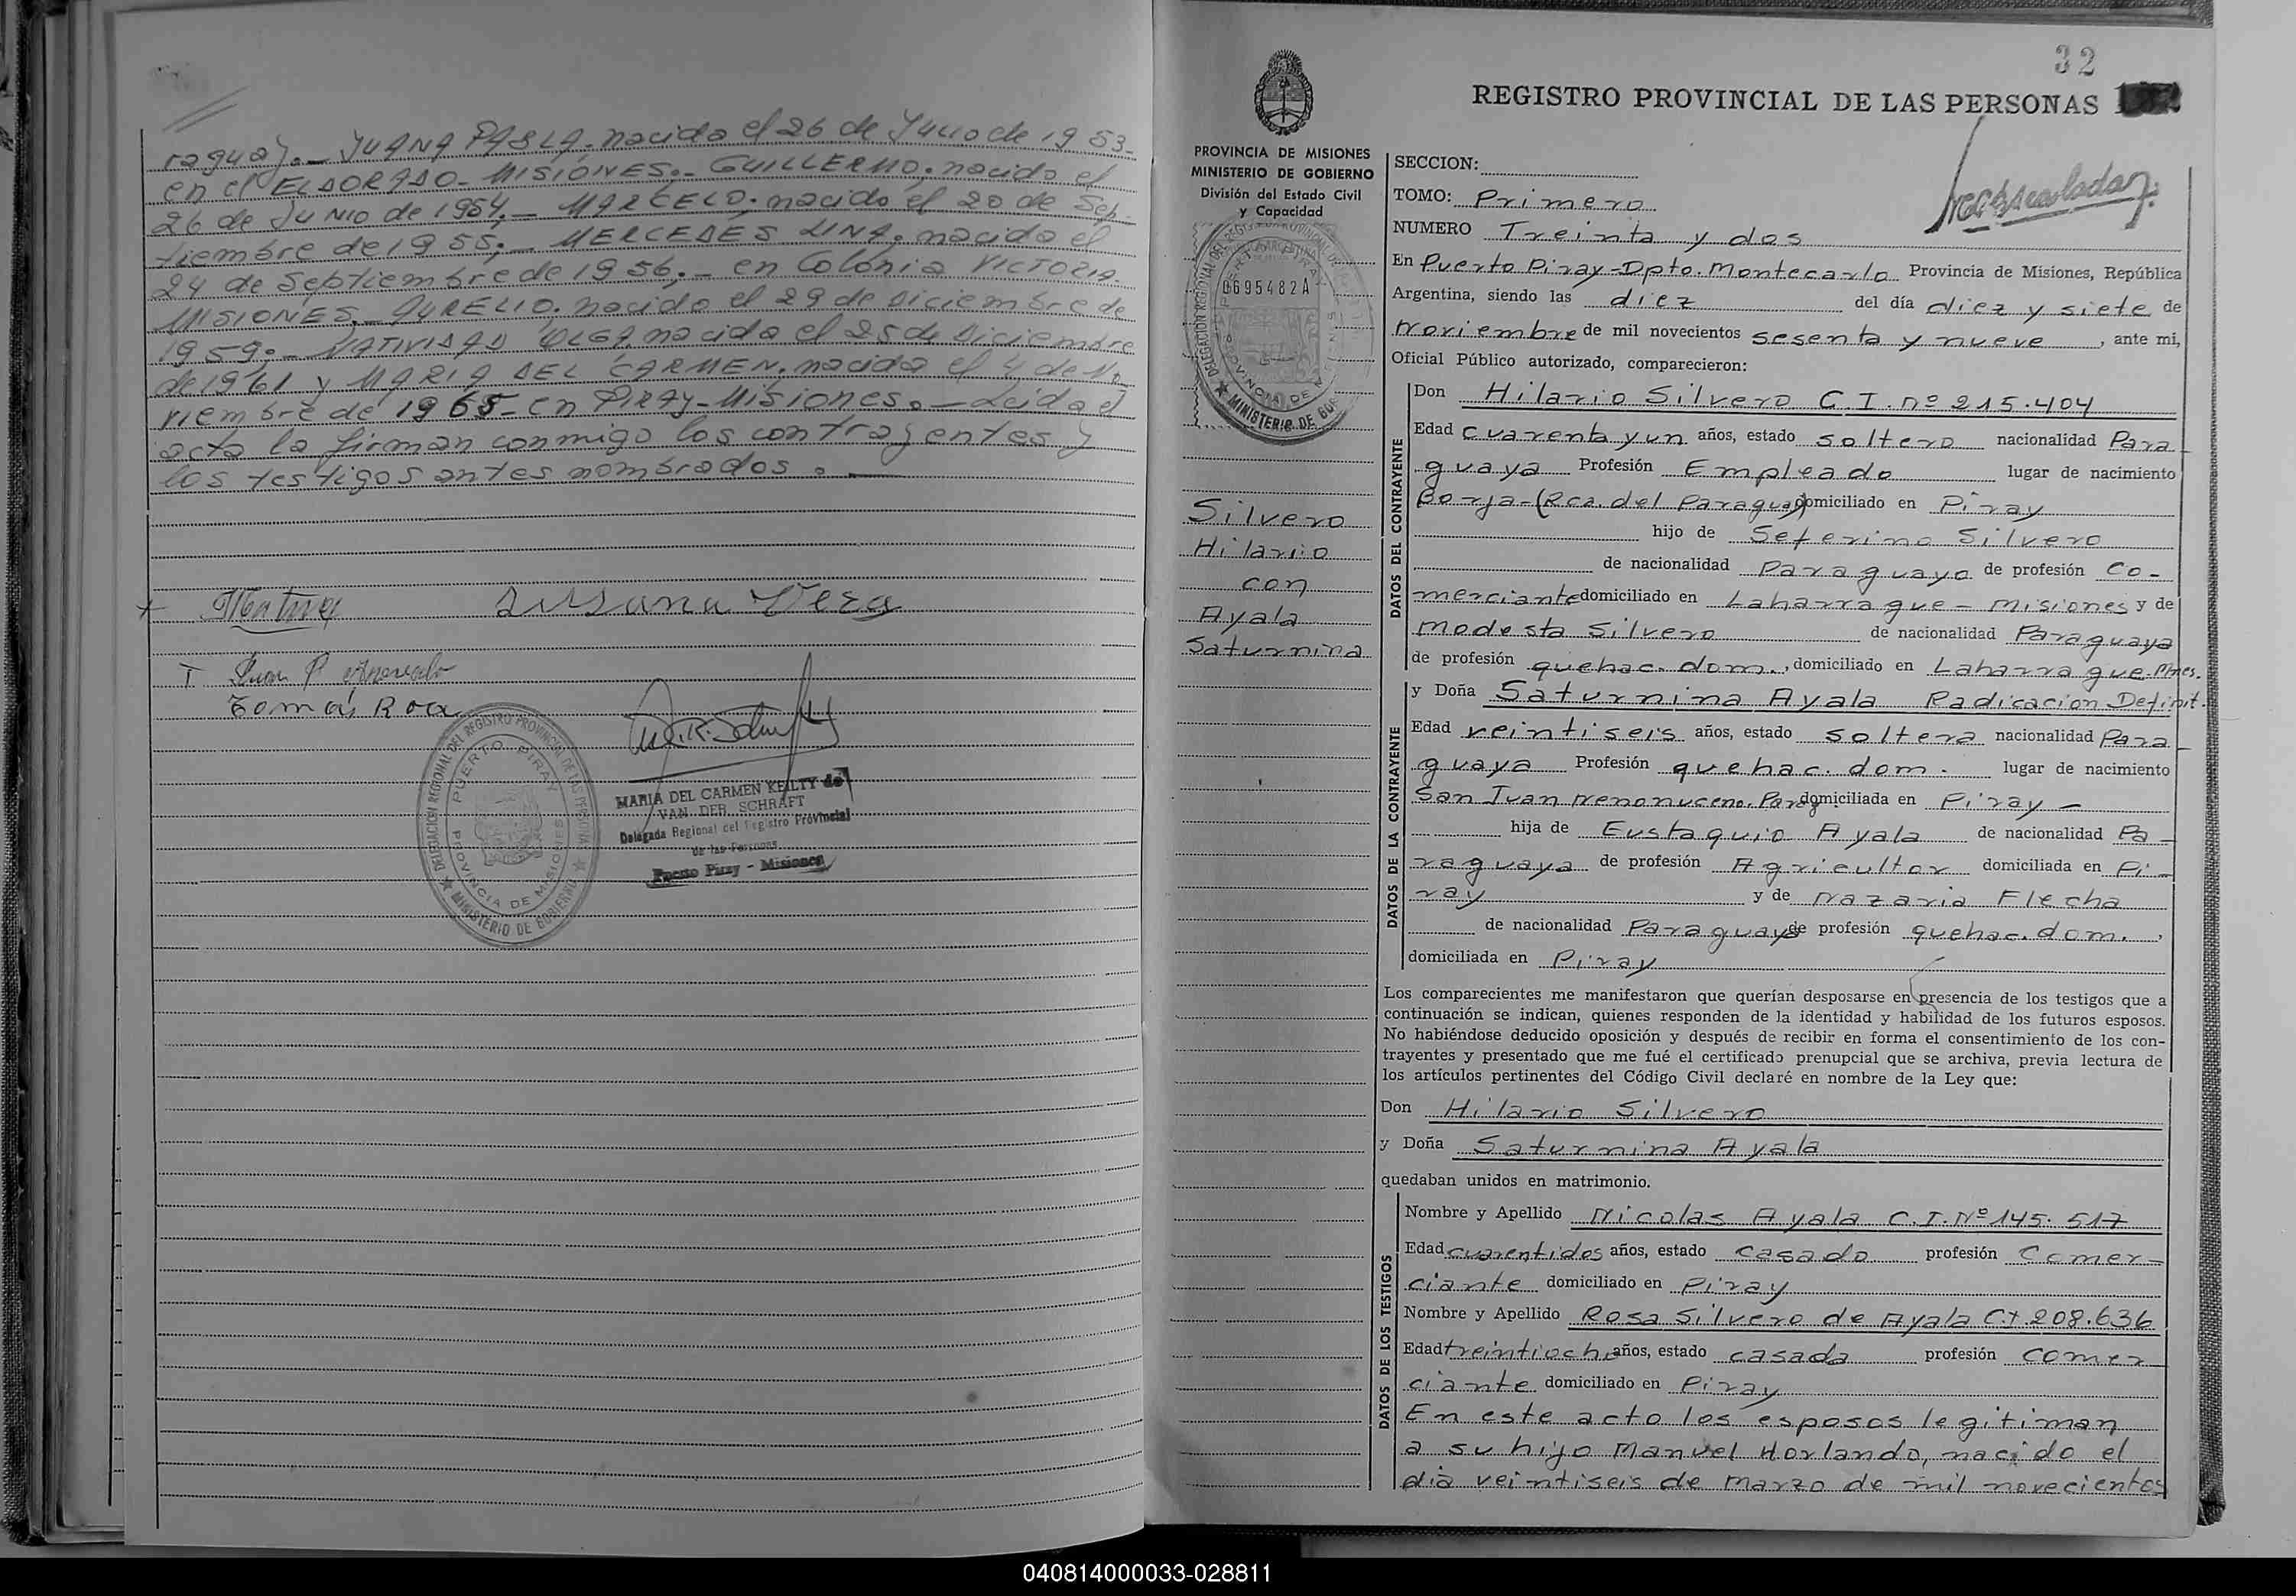 raguay._ JUANA PABLA. nacida el 26 de Junio de 1953_
en el ELDORADO_ MISIONES._ GUILLERMO. nacido el
26 de JUNIO de 1954._ MARCELO. nacido el 20 de Sep_
tiembre de 1955._ MERCEDES LINA. nacida el
24 de Septiembre de 1956._ en Colonia VICTORIA.
MISIONES._ AURELIO. nacido el 29 de Diciembre de
1959._ NATIVIDAD OLGA nacida el 25 de Diciembre
de 1961 y MARIA DEL CARMEN. nacida el 4 de No_
viembre de 1965_ en PIRAY_Misiones._ Leida el
acta la firman conmigo los contrayentes y
los testigos antes nombrados._
Susana Vera
Tomás Roa
DELEGACION REGIONAL DEL REGISTRO PROVINCIAL DE LAS PERSONAS
PUERTO PIRAY
PROVINCIA DE MISIONES
MINISTERIO DE GOBIERNO
MARIA DEL CARMEN KEILTY de
VAN DER SCHRAFT
Delegada Regional del Registro Provincial
de las Personas
Puerto Piray - Misiones
32
REGISTRO PROVINCIAL DE LAS PERSONAS
PROVINCIA DE MISIONES
MINISTERIO DE GOBIERNO
División del Estado Civil
y Capacidad
0695482A
MINISTERIO DE GOB
Silvero
Hilario
con
Ayala
Saturnina
SECCION:
TOMO: Primero
NUMERO Treinta y dos
En Puerto Piray-Dpto. Montecarlo Provincia de Misiones, República
Argentina, siendo las diez del día diez y siete de
Noviembre de mil novecientos sesenta y nueve, ante mi,
Oficial Público autorizado, comparecieron:
DATOS DEL CONTRAYENTE
Don Hilario Silvero C.I. nº 215.404
Edad cuarenta y un años, estado soltero nacionalidad Para_
guaya Profesión Empleado lugar de nacimiento
Borja-(Rca. del Paraguay) domiciliado en Piray
hijo de Seferino Silvero
de nacionalidad Paraguaya de profesión Co-
merciante domiciliado en Laharrague - Misiones y de
Modesta Silvero de nacionalidad Paraguaya
de profesión quehac. dom., domiciliado en Laharrague-Mnes.
DATOS DE LA CONTRAYENTE
y Doña Saturnina Ayala Radicacion Definit.
Edad veintiseis años, estado soltera nacionalidad Para_
guaya Profesión quehac. dom. lugar de nacimiento
San Juan Nenonuceno. Parag domiciliada en Piray -
hija de Eustaquio Ayala de nacionalidad Pa_
raguaya de profesión Agricultor domiciliada en Pi_
ray y de Nazaria Flecha
de nacionalidad Paraguaya de profesión quehac. dom.,
domiciliada en Piray
Los comparecientes me manifestaron que querían desposarse en presencia de los testigos que a
continuación se indican, quienes responden de la identidad y habilidad de los futuros esposos.
No habiéndose deducido oposición y después de recibir en forma el consentimiento de los con-
trayentes y presentado que me fué el certificado prenupcial que se archiva, previa lectura de
los artículos pertinentes del Código Civil declaré en nombre de la Ley que:
Don Hilario Silvero
y Doña Saturnina Ayala
quedaban unidos en matrimonio.
DATOS DE LOS TESTIGOS
Nombre y Apellido Nicolas Ayala C.I. Nº 145.517
Edad cuarentidos años, estado casado profesión Comer-
ciante domiciliado en Piray
Nombre y Apellido Rosa Silvero de Ayala C.I. 208.636
Edad treintiocho años, estado casada profesión comer
ciante domiciliado en Piray
En este acto los esposos legitiman
a su hijo Manuel Horlando, nacido el
dia veintiseis de marzo de mil novecientos
040814000033-028811